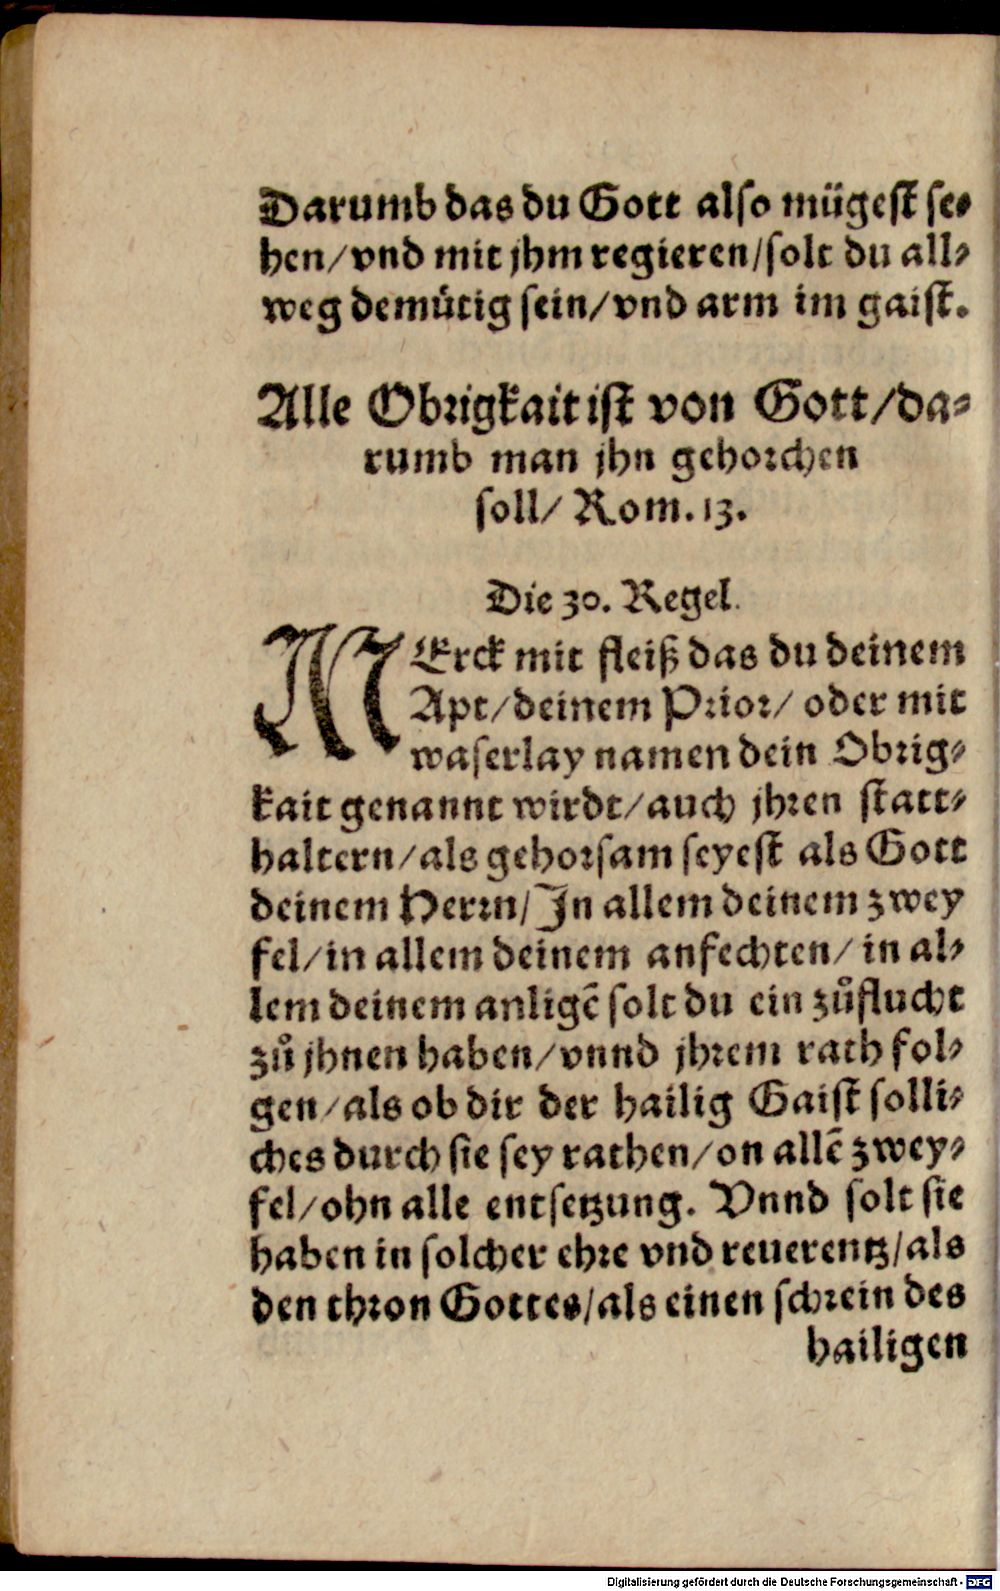 Darumb das du Gott also mügest se⸗
hen/vnd mit jhm regieren/solt du all⸗
weg demütig sein/vnd arm im gaist.
Alle Obrigkait ist von Gott/da⸗
rumb man jhn gehorchen
soll/ Rom. 13.
Die 30. Regel.
MErck mit fleiß das du deinem
Apt/deinem Prior/ oder mit
waserlay namen dein Obrig⸗
kait genannt wirdt/auch jhren statt⸗
haltern/als gehorsam seyest als Gott
deinem Herrn/Jn allem deinem zwey
fel/in allem deinem anfechten/ in al⸗
lem deinem anligẽ solt du ein zůflucht
zů jhnen haben/vnnd jhrem rath fol⸗
gen/als ob dir der hailig Gaist solli⸗
ches durch sie sey rathen/on allẽ zwey⸗
fel/ohn alle entsetzung. Vnnd solt sie
haben in solcher ehre vnd reuerentz/als
den thron Gottes/als einen schrein des
hailigen
Digitalisierung gefördert durch die Deutsche Forschungsgemeinschaft - DFG